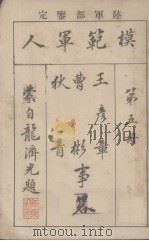 陸軍部鑒定
模範軍人
第五冊
王彥章
曹彬
秋青
事畧
蒙自龍濟光題